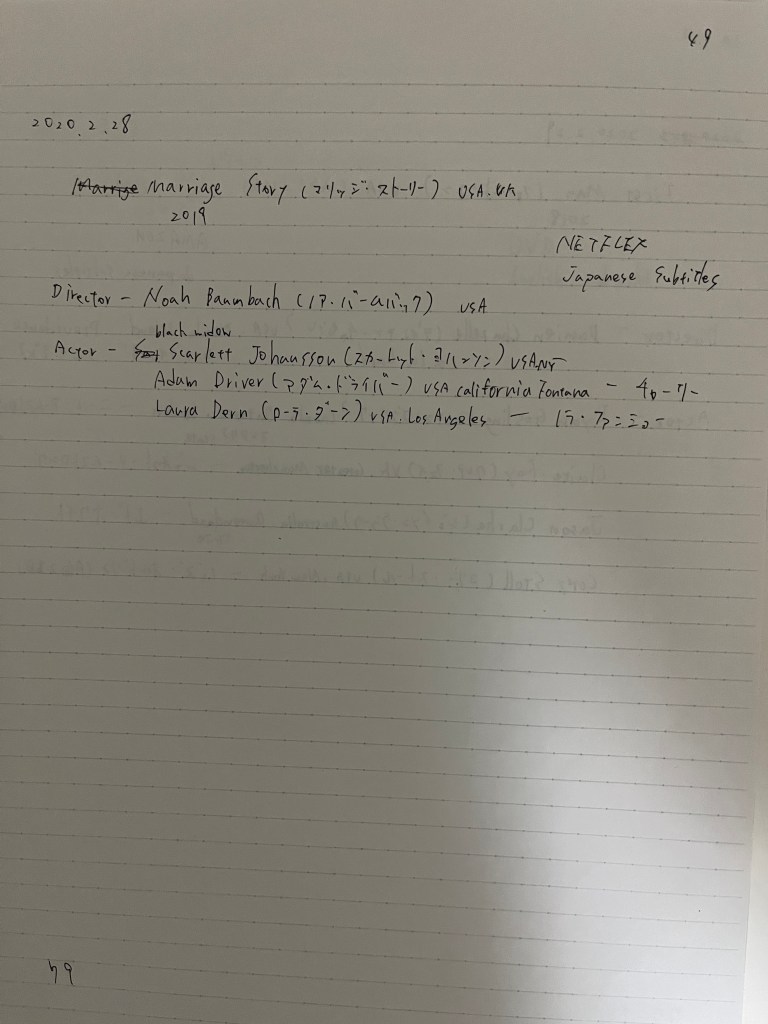 49
2020.2.28
Marrige Marriage Story (マリッジ・ストーリー) USA.UK
2019
NETFLEX
Japanese Subtitles
Director - Noah Baumbach (ノア・バームバック) USA
black widow
Actor - Scarlett Johansson (スカーレット・ヨハンソン) USA NY
Adam Driver (アダム・ドライバー) USA california Fontana -
Laura Dern (ローラ・ダーン) USA. Los Angeles -
49